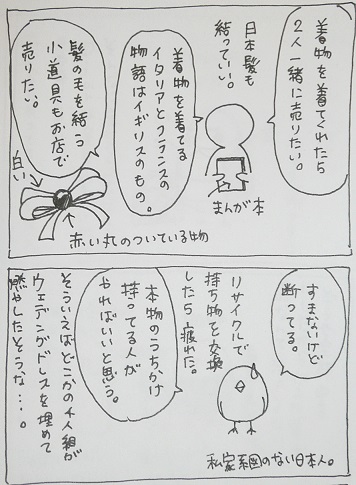 着物を着てくれたら
2人一緒に売りたい。
日本髪も
結っていい。
着物を着てる
イタリアとフランスの
物語はイギリスのもの。
まんが本
髪の毛を結う
小道具もお店で
売りたい。
白い
赤い丸のついている物
すまないけど
断ってる。
リサイクルで
持ち物を交換
したら疲れた。
本物のうちかけ
持ってる人が
やればいいと思う。
そういえばどこかの4人組が
ウェディングドレスを埋めて
燃やしたそうな…。
私家系図のない日本人。